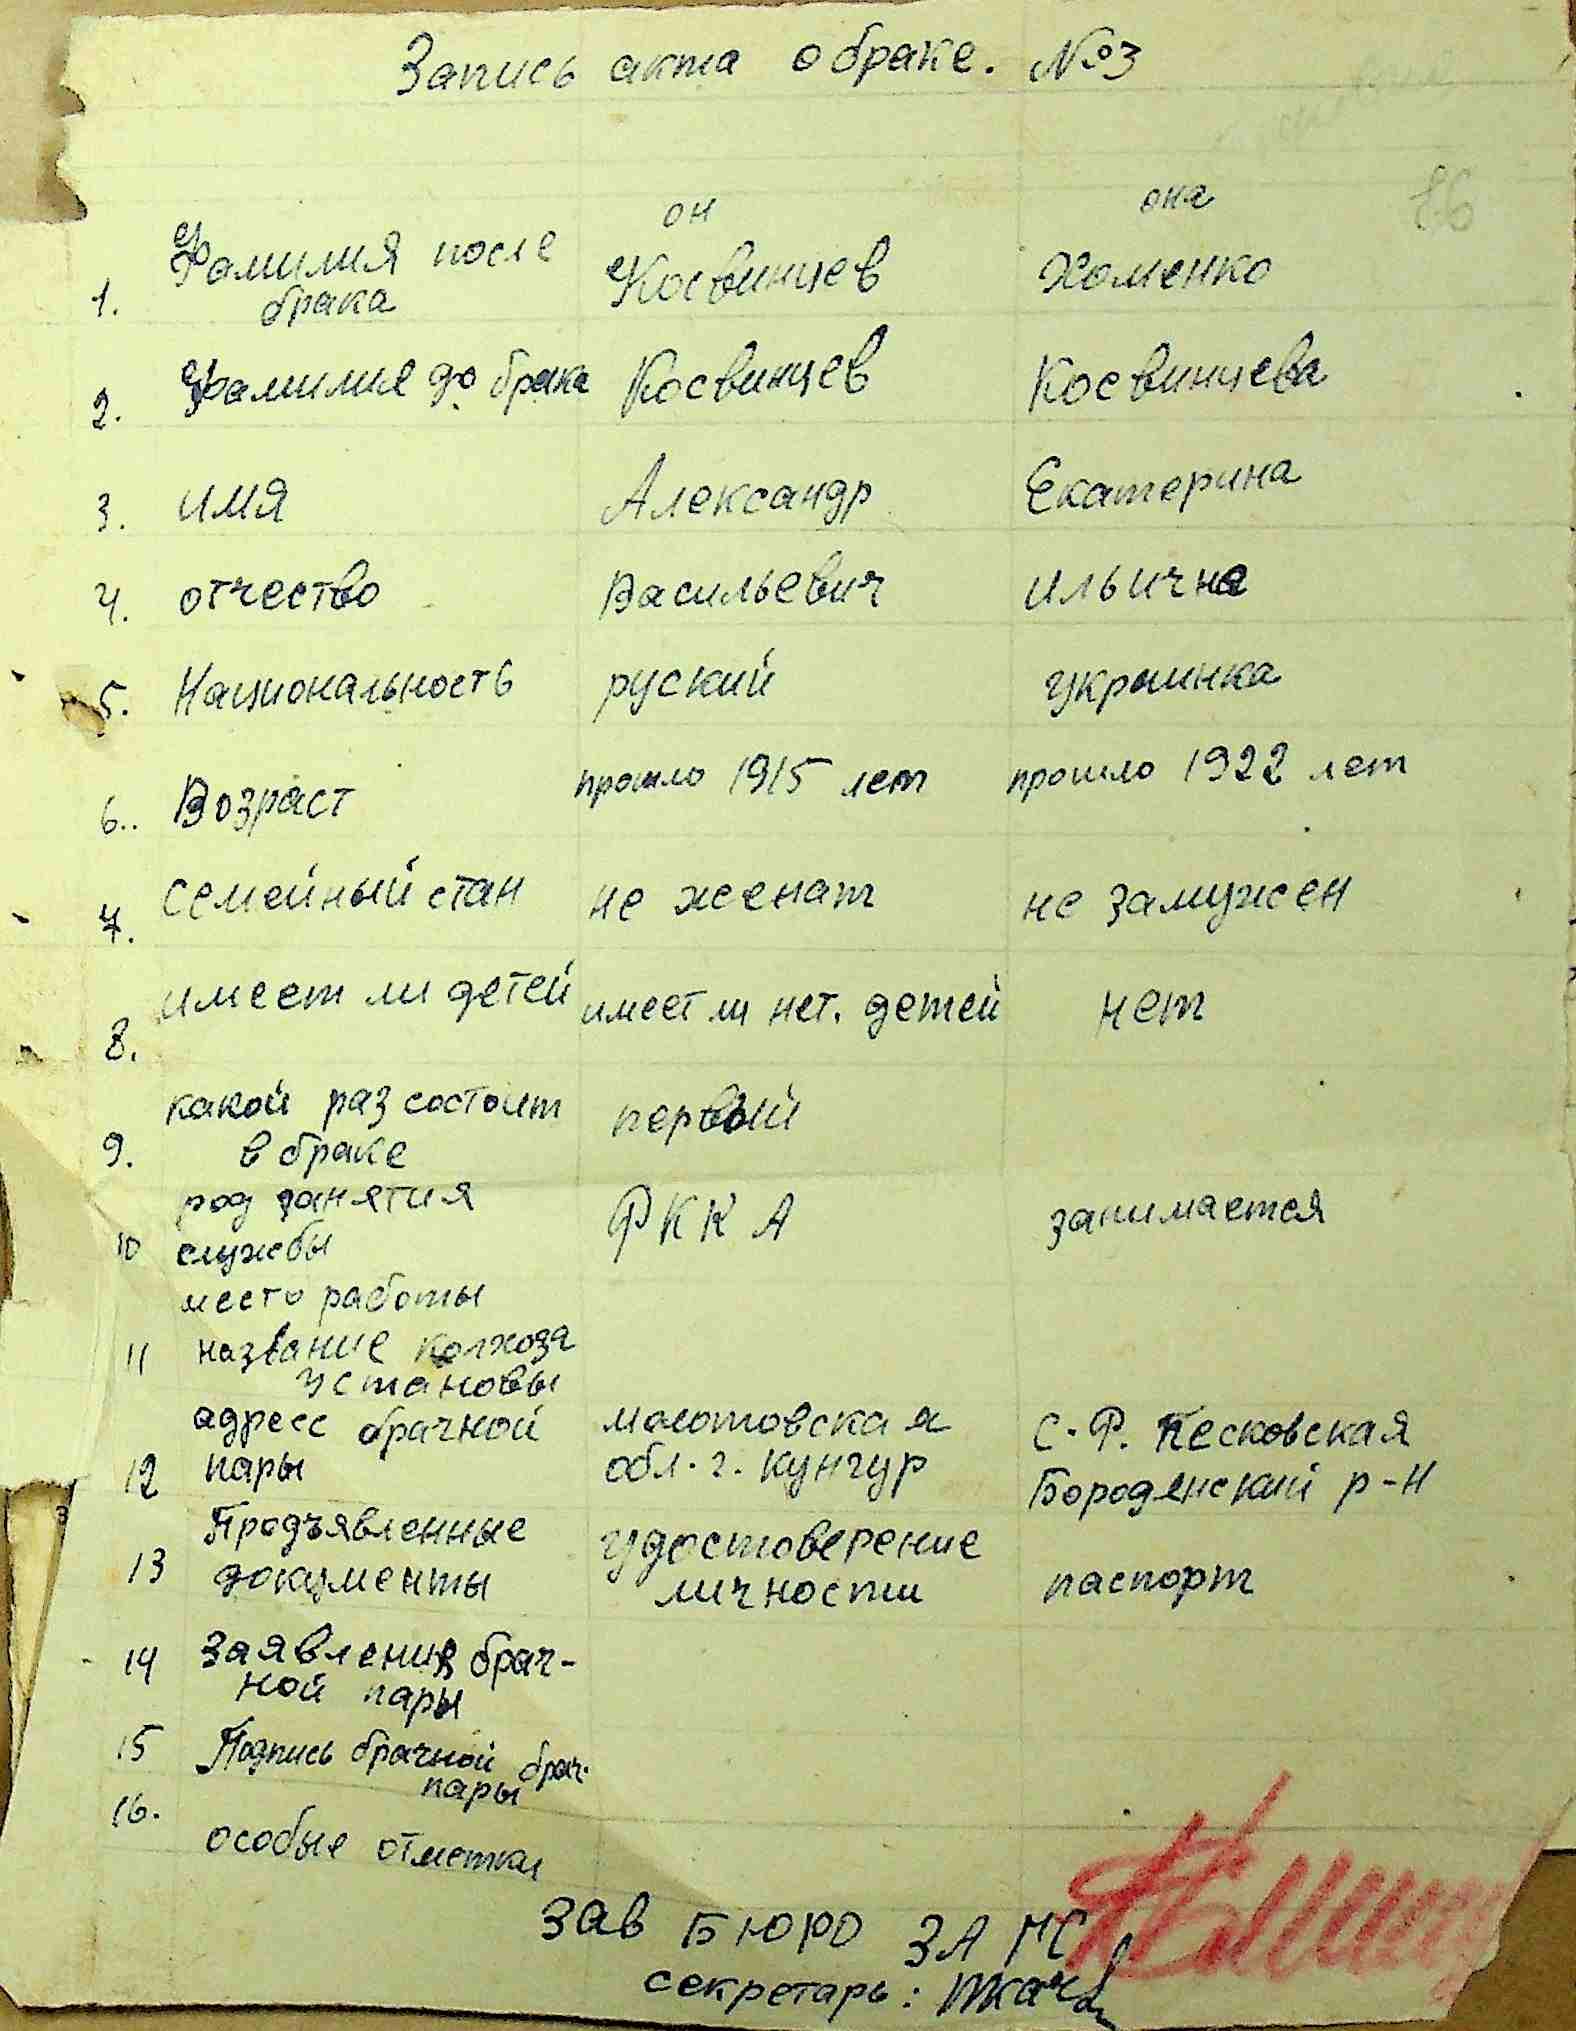 Запись акта о браке. №3
86
он она
1. Фамилия после брака Косвинцев Хоменко
2. Фамилие до брака Косвинцев Косвинцева
3. имя Александр Екатерина
4. отчество Васильевич ильична
5. Национальность руский украинка
6.. Возраст прошло 1915 лет прошло 1922 лет
7. Семейный стан не женат не замужен
8. имеет ли детей имеет ли нет. детей нет
9. какой раз состоит первый
в браке
10 род занятия РККА занимается
службы
место работы
11 название колхоза
установы
адресс брачной молотовская С.Р. Песковская
12 пары обл. г. кунгур Бородянский р-н
Продъявленные удостоверение
13 документы личности паспорт
14 Заявления брач-
ной пары
15 Подпись брачной брач.
пары
16.
особые отметки
Зав Бюро ЗАГС
секретарь: Ткач